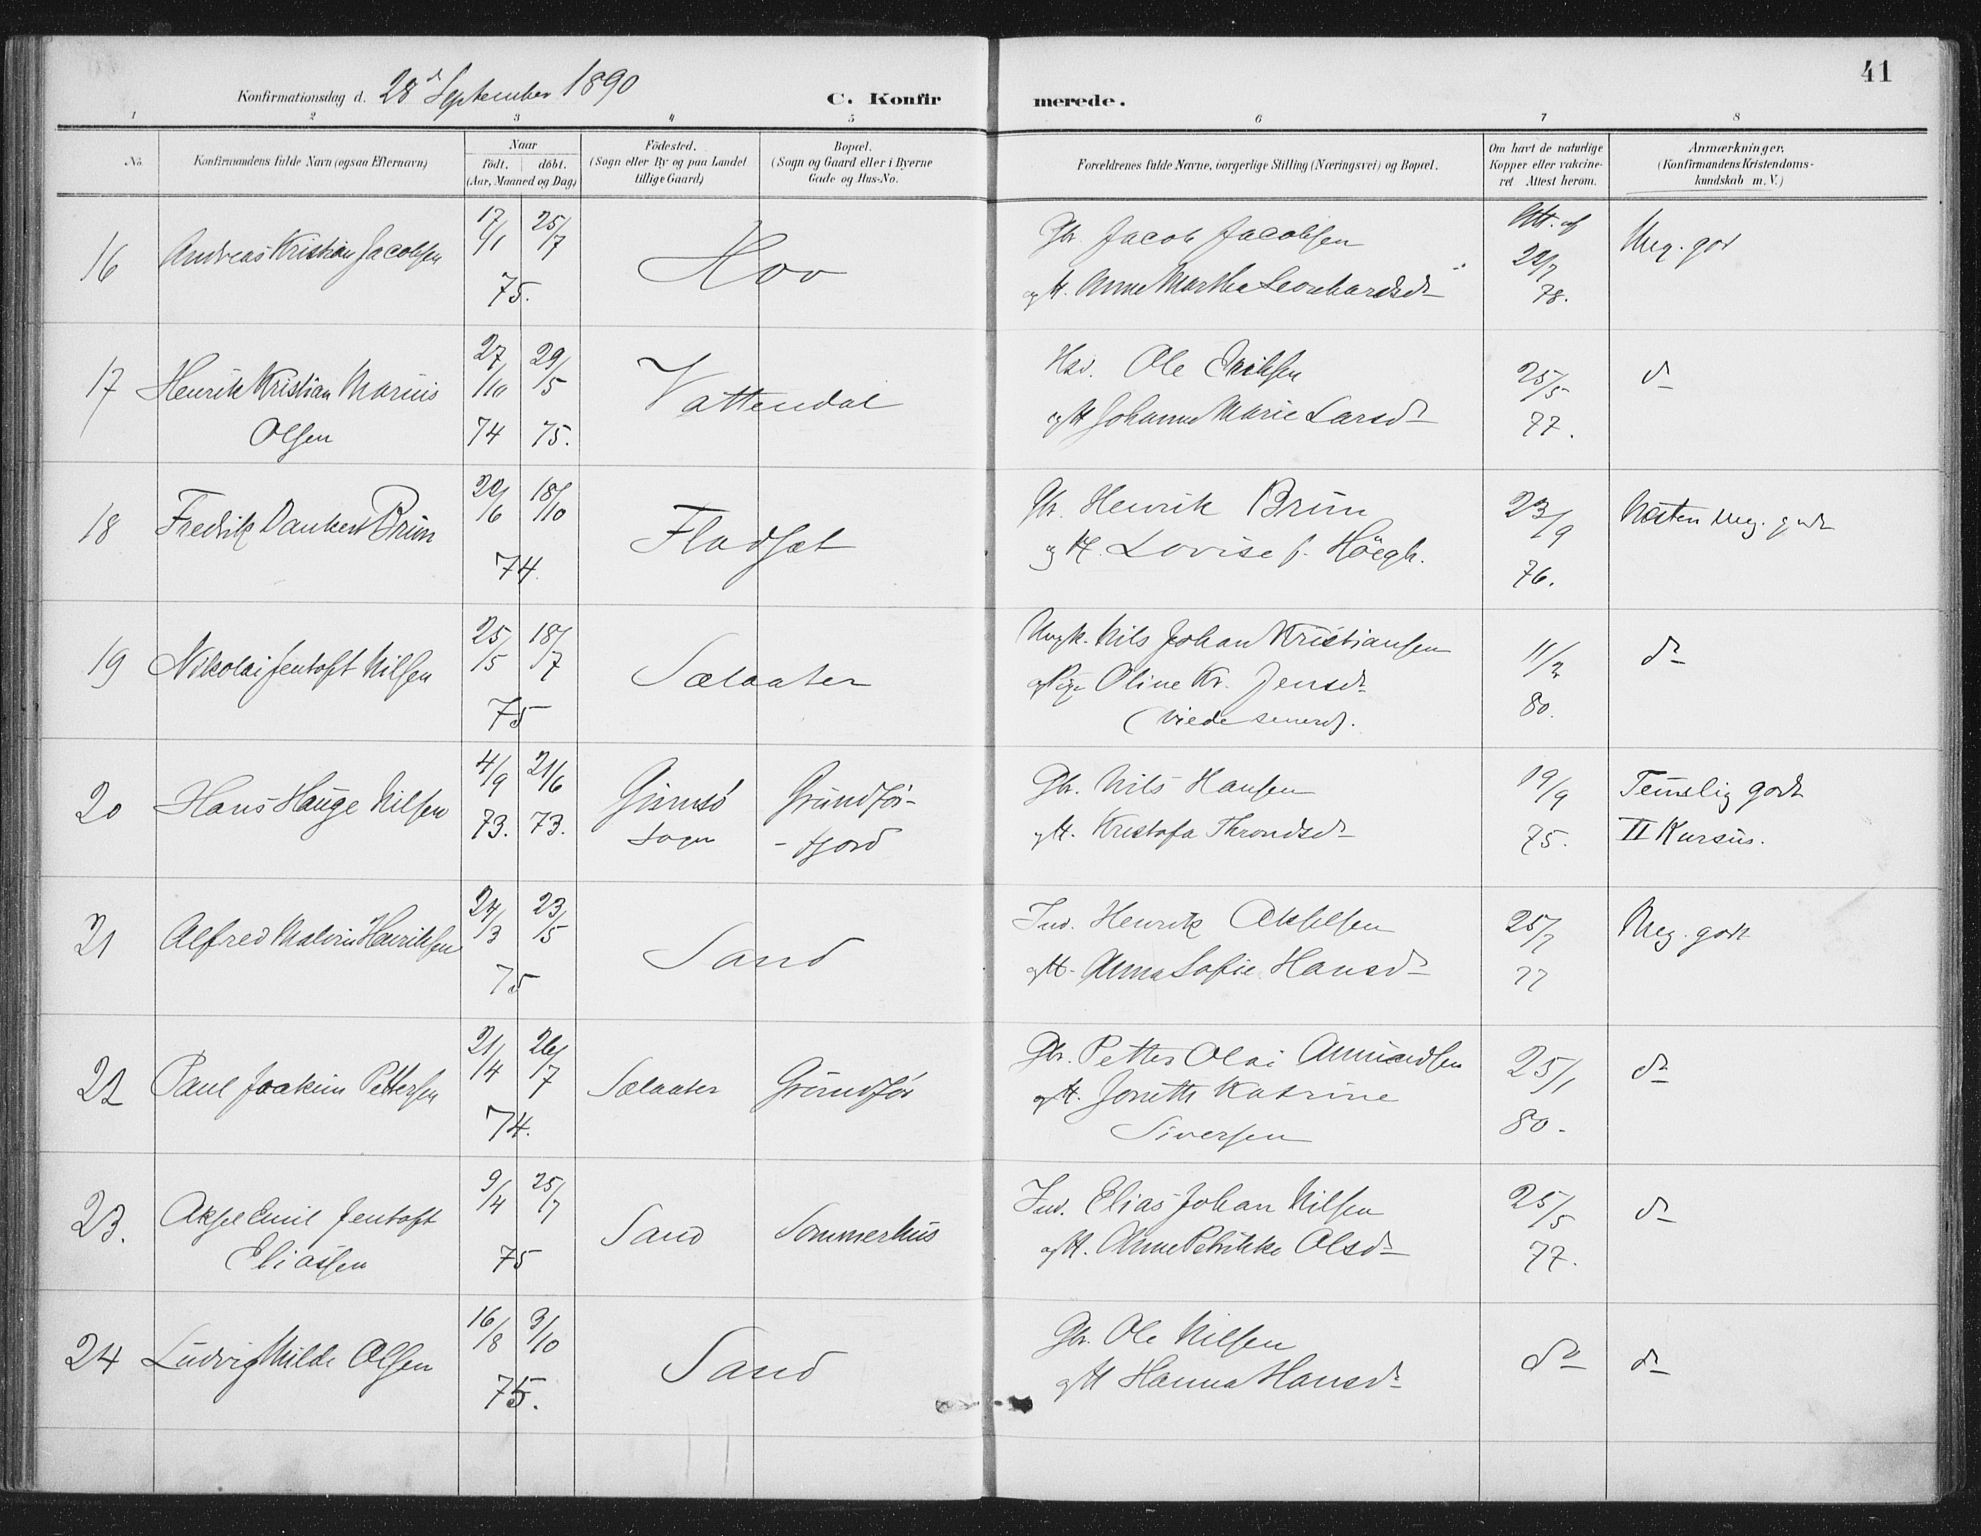 41
Konfirmationsdag d. 28d September 1890
C. Konfirmerede.
1 2 3 4 5 6 7 8
No.
Konfirmandens fulde Navn (ogsaa Efternavn)
Naar
födt. döbt.
(Aar, Maaned og Dag)
Födested.
(Sogn eller By og paa Landet
tillige Gaard)
Bopæl.
(Sogn og Gaard eller i Byerne
Gade og Hus-No.
Forældrenes fulde Navne, borgerlige Stilling (Næringsvei) og Bopæl.
Om havt de naturlige
Kopper eller vakcine-
ret Attest herom.
Anmærkninger,
(Konfirmandens Kristendoms-
kundskab m. V.)
16 Andreas Kristian Jacobsen 17/1 25/7 75. Hov
Gbr. Jacob Jacobsen
og H. Anne Martha Leonhardsdr
Att. af 22/7 78.
Meg. god
17 Henrik Kristian Marius
Olsen
27/10 74 29/5 75. Vattendal
Hsd. Ole Eriksen
og H Johanna Marie Larsdr
25/5 77.
do
18 Fredrik Dankert Brun 22/6 18/10 74. Fladset
Gbr. Henrik Brun
og H. Lovise f. Höegh.
23/9 76.
Næsten meg. godt
19 Nikolai Jentoft Nilsen 25/5 18/7 75 Sælaater
Ungk. Nils Johan Kristiansen
og Pige Oline Kr. Jensdr
(viede senere).
80.
do
20 Hans Hauge Nilsen 4/9 73. 21/6 73. Gimsö
Sogn
Grundför-
-fjord
Gbr. Nils Hansen
og H. Kristofa Throndsdr
19/9 75.
Temelig godt
II Kursus.
21 Alfred Malvin Henriksen 24/3 23/5 75 Sand
Ind. Henrik Akselsen
og H. Anna Sofie Hansdr
25/7 77
Meg. godt
22 Paul Joakim Pettersen 21/4 26/7 74. Sælaater Grundför
Gbr. Petter Olai Amundsen
og H. Jonette Katrine
Siversen
25/1 80.
do
23. Aksel Emil Jentoft
Eliassen
9/4 25/7 75 Sand Sommerhus
Ind. Elias Johan Nilsen
og H. Anne Petrikke Olsdr
25/5 77.
do
24 Ludvig Milde Olsen 16/8 3/10 75. Sand
Gbr. Ole Nilsen
og H Hanna Hansdr
do
do